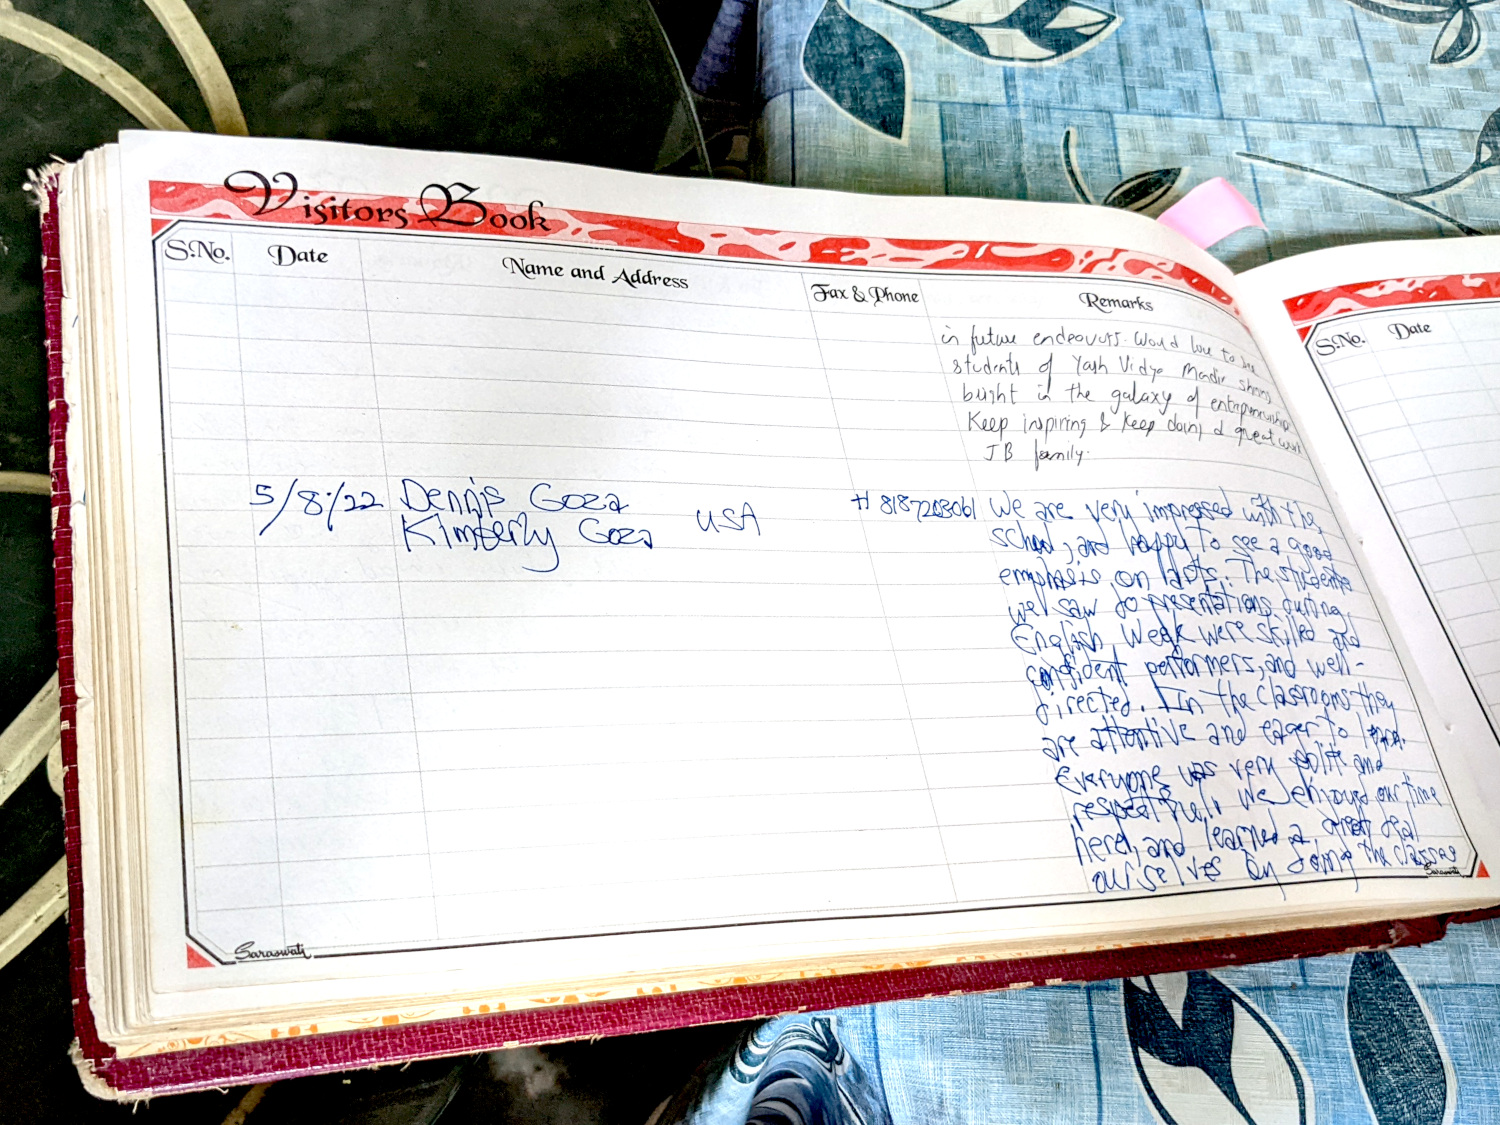 Visitors Book
S.No. Date Name and Address Fax & Phone Remarks
in future endeavors. Would love to see
students of Yash Vidya Mandir shine
bright in the galaxy of entrepreneurship
Keep inspiring & keep doing a great work
JB family.
5/8/22 Dennis Goza
Kimberly Goza USA
8187203061
We are very impressed with the
school, and happy to see a good
emphasis on arts. The students
we saw do presentations during
English Week were skilled and
confident performers, and well-
directed. In the classrooms they
are attentive and eager to learn.
Everyone was very polite and
respectful. We enjoyed our time
here, and learned a great deal
ourselves by doing the classes
Saraswati
Saraswati
S.No. Date